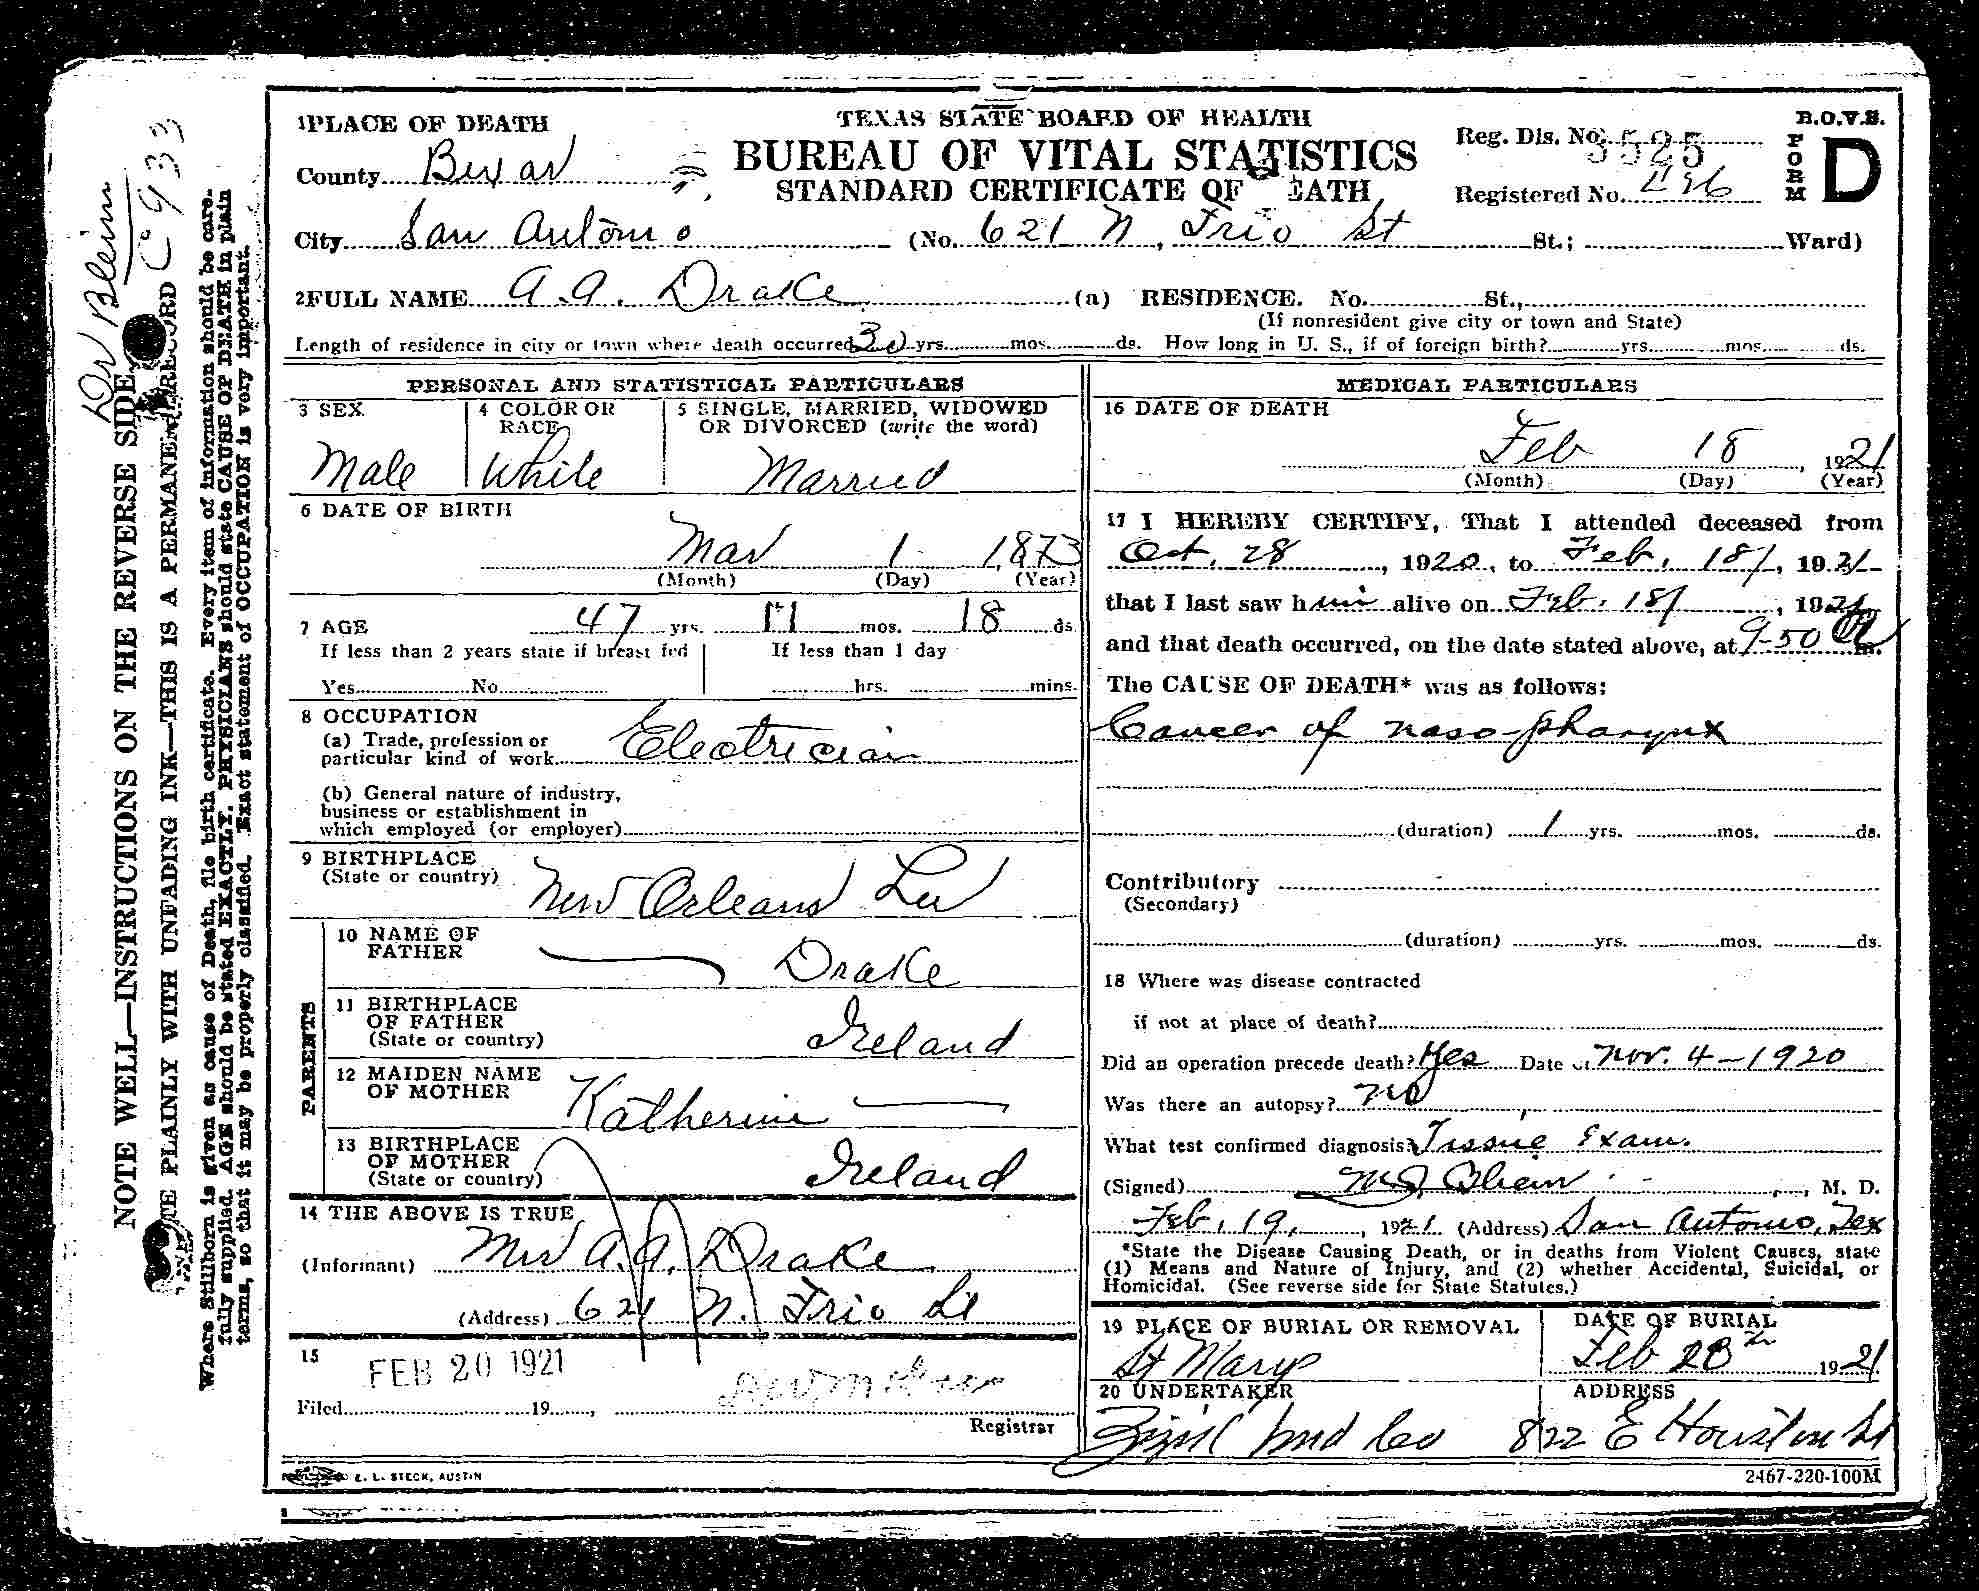 TEXAS STATE BOARD OF HEALTH
BUREAU OF VITAL STATISTICS
STANDARD CERTIFICATE OF DEATH
Reg. Dis. No. 3525
Registered No.
B.O.V.S.
FORM D
1 PLACE OF DEATH
County Bexar
City San Antonio (No. 621 N, Frio St St.; Ward)
2 FULL NAME A.A. Drake (a) RESIDENCE. No. St.,
(If nonresident give city or town and State)
Length of residence in city or town where death occurred 30 yrs. mos. ds. How long in U. S., if of foreign birth? yrs. mos. ds.
PERSONAL AND STATISTICAL PARTICULARS
3 SEX
Male
4 COLOR OR RACE
White
5 SINGLE, MARRIED, WIDOWED
OR DIVORCED (write the word)
Married
6 DATE OF BIRTH
Mar 1 1873
(Month) (Day) (Year)
7 AGE 47 yrs. 11 mos. 18 ds.
If less than 2 years state if breast fed
Yes No
If less than 1 day
hrs. mins.
8 OCCUPATION
(a) Trade, profession or
particular kind of work Electrician
(b) General nature of industry,
business or establishment in
which employed (or employer)
9 BIRTHPLACE
(State or country) New Orleans
10 NAME OF
FATHER Drake
PARENTS
11 BIRTHPLACE
OF FATHER
(State or country) Ireland
12 MAIDEN NAME
OF MOTHER Katherine
13 BIRTHPLACE
OF MOTHER
(State or country) Ireland
14 THE ABOVE IS TRUE
(Informant) Mrs A.A. Drake
(Address) 621 N. Frio St
15
FEB 20 1921
Filed 19 ,
Registrar
MEDICAL PARTICULARS
16 DATE OF DEATH
Feb 18, 1921
(Month) (Day) (Year)
17 I HEREBY CERTIFY, That I attended deceased from
Oct. 28, 1920, to Feb. 18/, 1921
that I last saw him alive on Feb. 18/, 1921
and that death occurred, on the date stated above, at 9-50 m.
The CAUSE OF DEATH* was as follows:
Cancer of naso-pharynx
(duration) 1 yrs. mos. ds.
Contributory
(Secondary)
(duration) yrs. mos. ds.
18 Where was disease contracted
if not at place of death?
Did an operation precede death? Yes Date of Nov. 4-1920
Was there an autopsy? no
What test confirmed diagnosis? Tissue Exam.
(Signed) M. D.
Feb. 19, 1921 (Address) San Antonio, Tex
*State the Disease Causing Death, or in deaths from Violent Causes, state
(1) Means and Nature of Injury, and (2) whether Accidental, Suicidal, or
Homicidal. (See reverse side for State Statutes.)
19 PLACE OF BURIAL OR REMOVAL
St Marys
DATE OF BURIAL
Feb 1921
20 UNDERTAKER
Und Co
ADDRESS
822 E Houston St
E. L. STECK, AUSTIN
2467-220-100M
NOTE WELL—INSTRUCTIONS ON THE REVERSE SIDE
PLAINLY WITH UNFADING INK—THIS IS A PERMANENT RECORD
Where Stillborn is given as cause of Death, file birth certificate. Every item of information should be care-
fully supplied. AGE should be stated EXACTLY. PHYSICIANS should state CAUSE OF DEATH in plain
terms, so that it may be properly classified. Exact statement of OCCUPATION is very important.